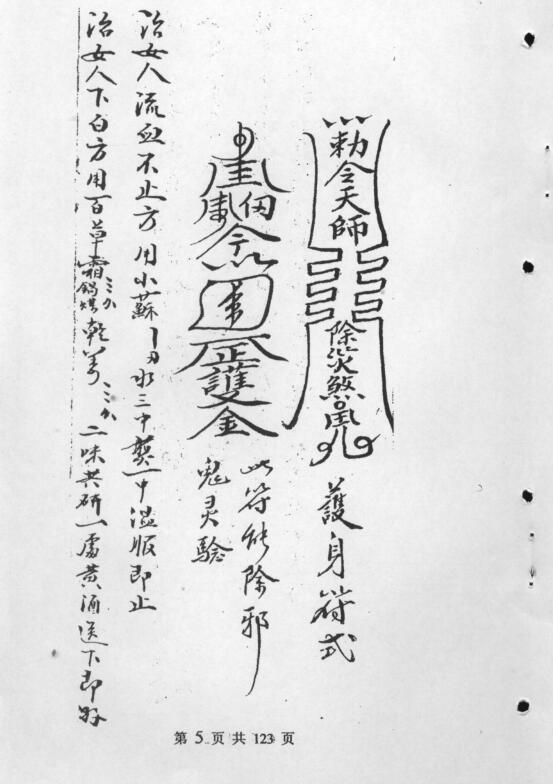 勅令天師
除災煞鬼
護身符式
令
正護金
此符能除邪
鬼灵驗
治女人流血不止方用小蘇一刃水三中煎一中溫服即止
治女人下白方用百草霜三分鍋煤乾姜三分二味共研一處黃酒送下即好
第 5 页 共 123 页